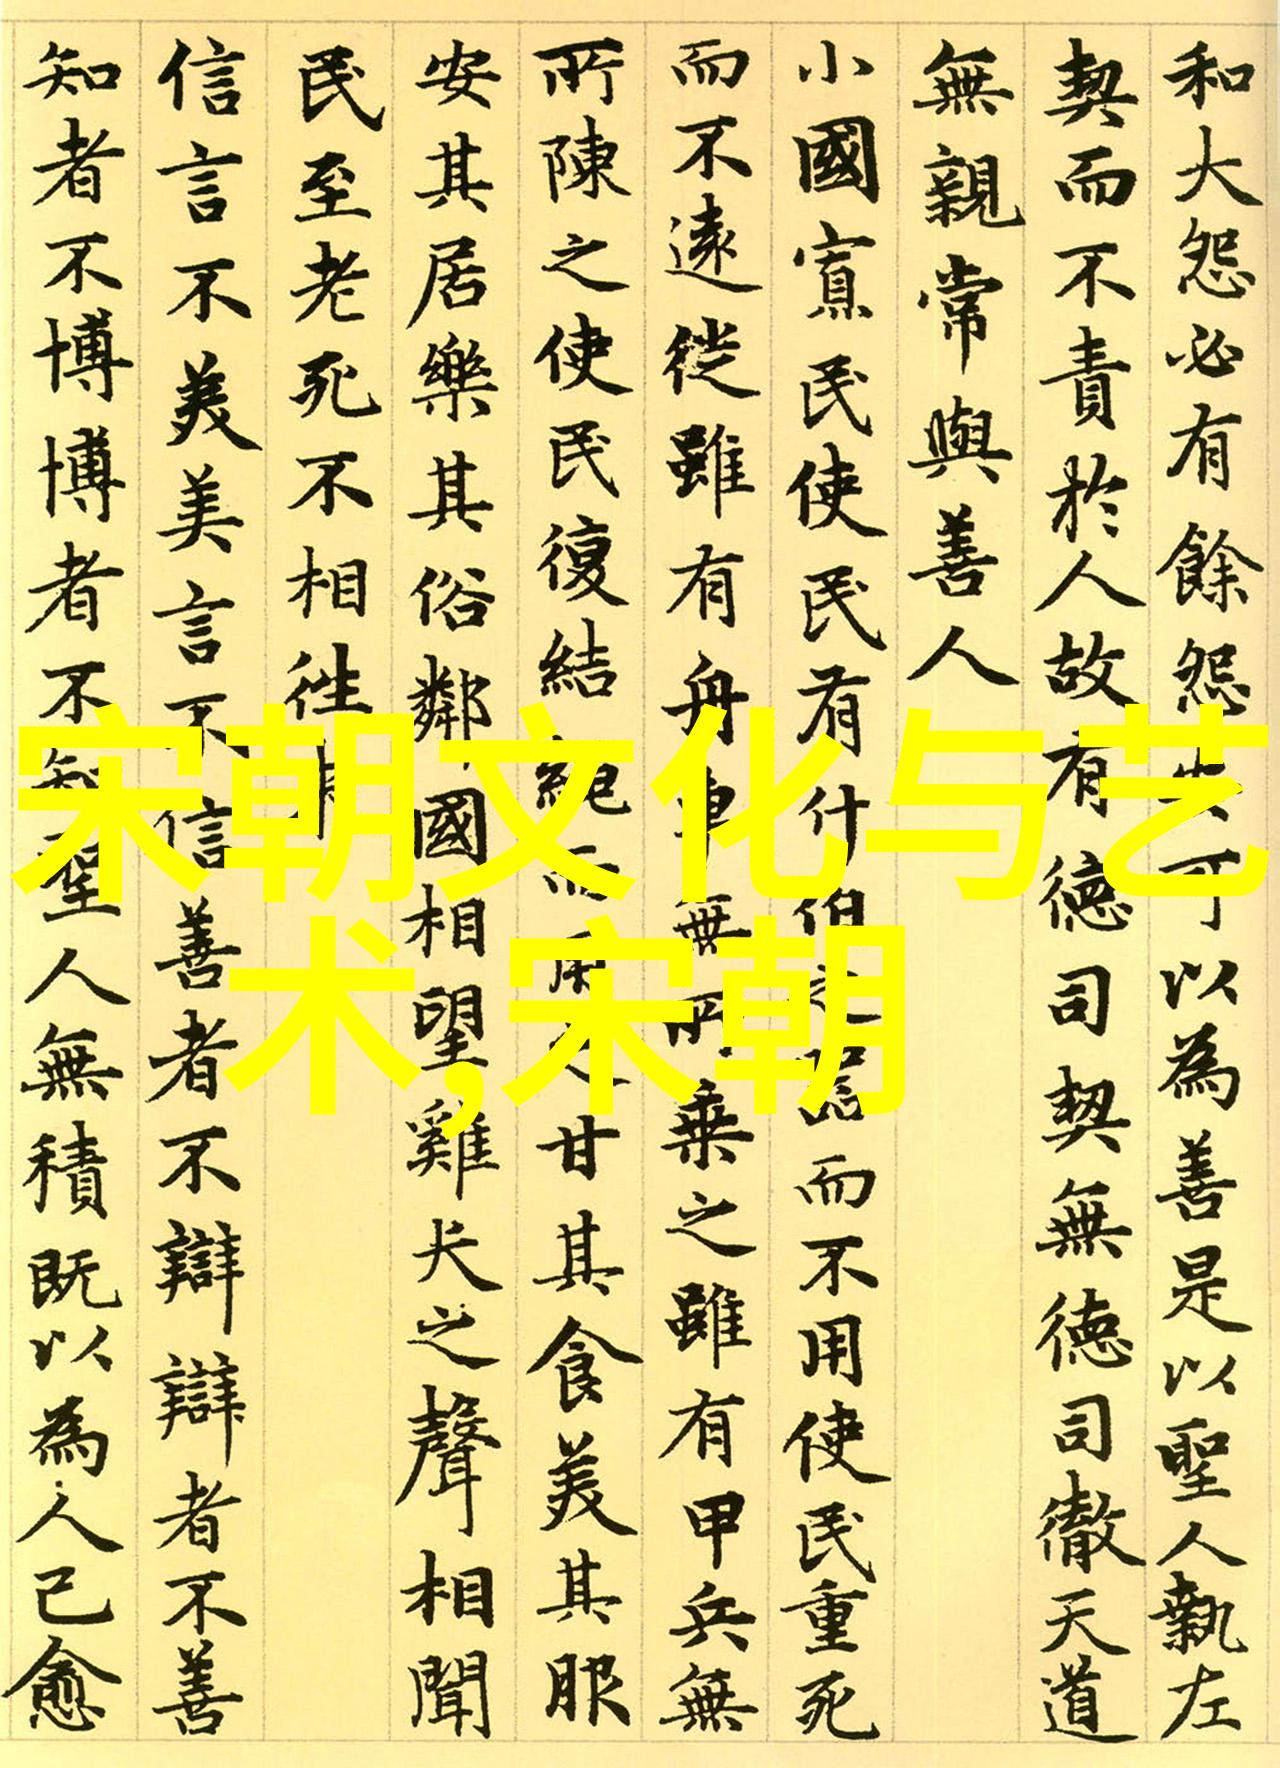 和大怨必有餘怨安可以為善是以聖人執左
契而不責於人故有德司契無德司徹天道
無親常與善人
小國寡民使民有什伯之器而不用使民重死
而不遠徙雖有舟車無所乘之雖有甲兵無
所陳之使民復結繩而用之甘其食美其服
安其居樂其俗鄰國相望雞犬之聲相聞
民至老死不相往
信言不美美言不信善者不辯辯者不善
知者不博博者不知聖人無積既以為人己愈
宋朝文化与艺
术,宋朝